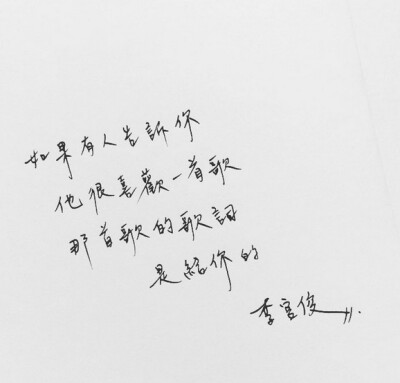 如果有人告訴你
他很喜歡一首歌
那首歌的歌詞
是給你的
李宮俊